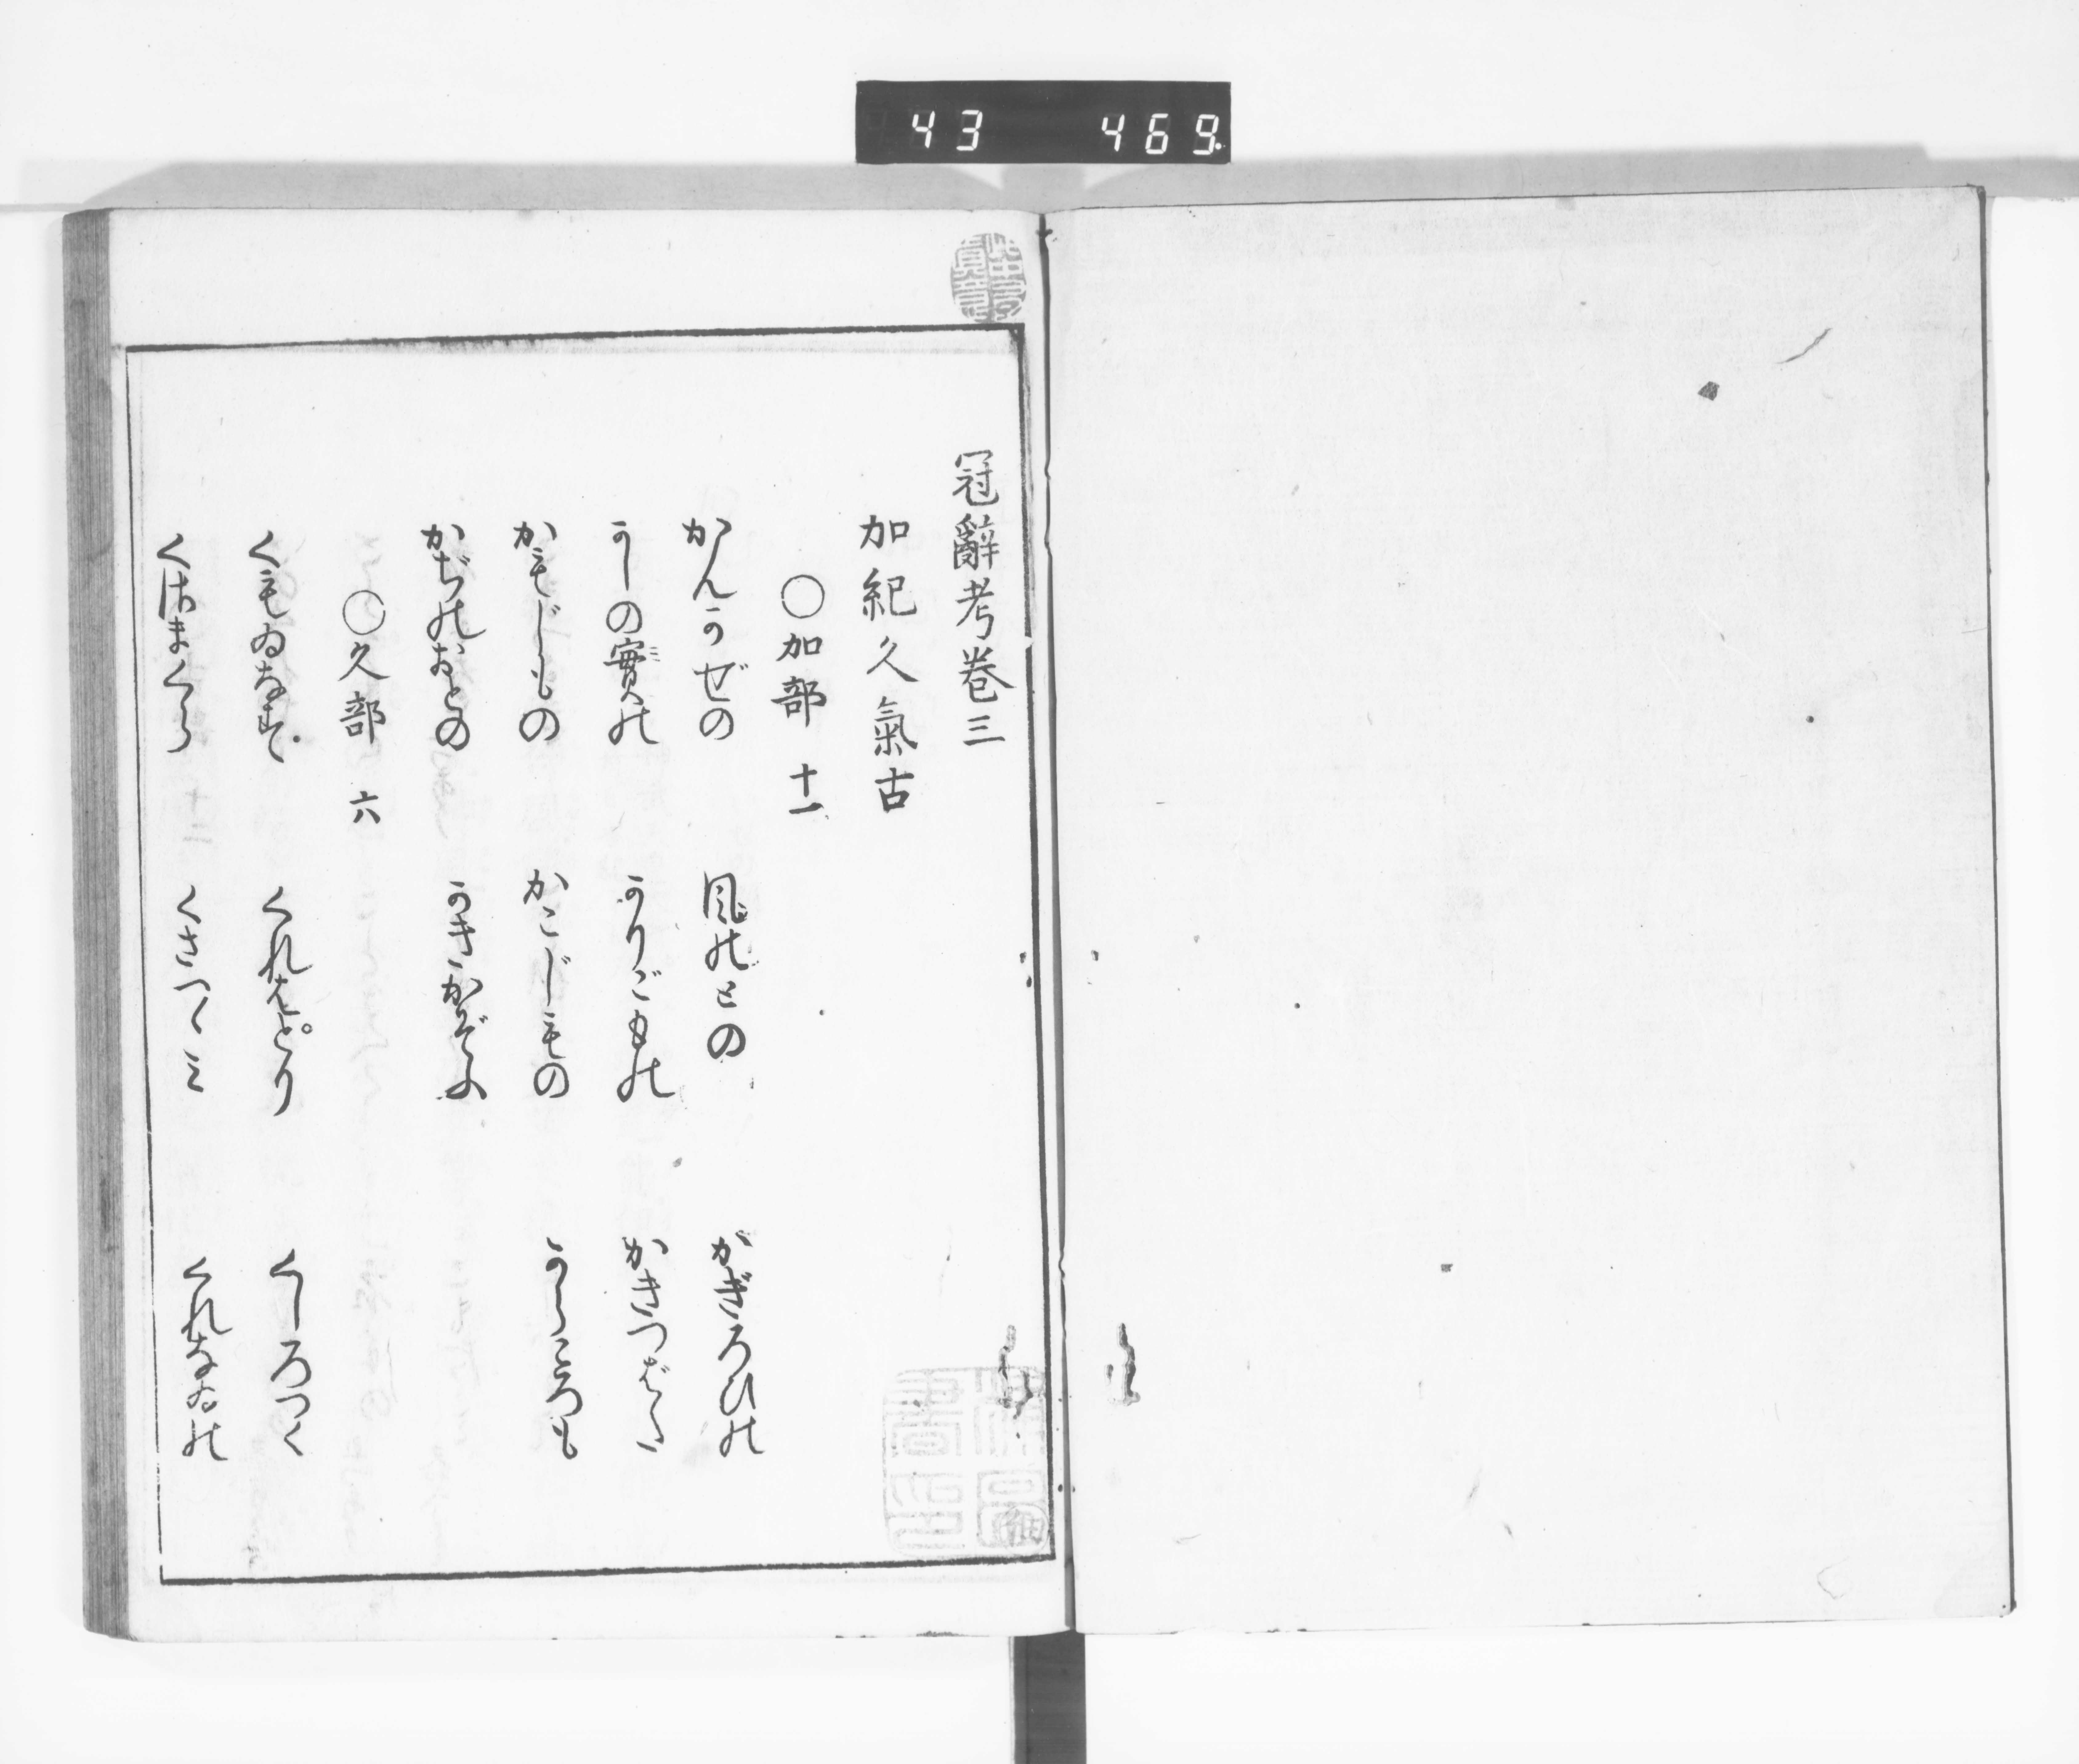 43 469.
冠辭考卷三
加紀久氣古
○加部 十一
かんかぜの 風のとの かぎろひの
かしの實の かりごもの かきつばた
かもじもの かこじもの からころも
かぢのおとの かきかぞふ
○久部 六
くもゐなす くれはとり くしろつく
くさまくら くさつゝみ くれなゐの